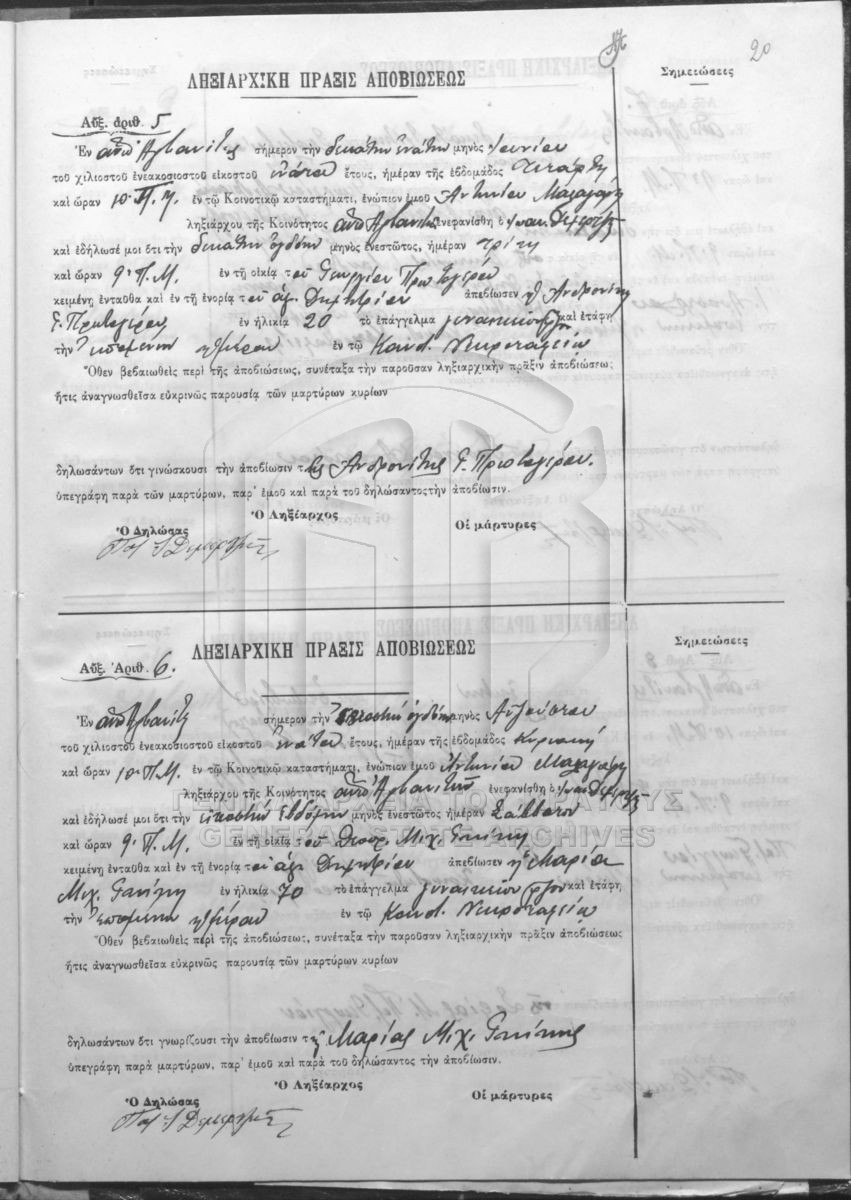 20
ΛΗΞΙΑΡΧΙΚΗ ΠΡΑΞΙΣ ΑΠΟΒΙΩΣΕΩΣ
Σημειώσεις
Αὔξ. ἀριθ. 5
Ἐν σήμερον τὴν δεκάτην ἐνάτην μηνὸς Ἰουνίου
τοῦ χιλιοστοῦ ἐνεακοσιοστοῦ εἰκοστοῦ ἐνάτου ἔτους, ἡμέραν τῆς ἑβδομάδος Τετάρτη
καὶ ὥραν 10 Π.Μ. ἐν τῷ Κοινοτικῷ καταστήματι, ἐνώπιον ἐμοῦ Ἀντωνίου
ληξιάρχου τῆς Κοινότητος ἐνεφανίσθη ὁ
καὶ ἐδήλωσέ μοι ὅτι τὴν δεκάτην ὀγδόην μηνὸς ἐνεστῶτος, ἡμέραν τρίτη
καὶ ὥραν 9 Π.Μ. ἐν τῇ οἰκίᾳ τοῦ Γεωργίου Πρωτογέρου
κειμένῃ ἐνταῦθα καὶ ἐν τῇ ἐνορίᾳ τοῦ ἁγ. Δημητρίου ἀπεβίωσεν ἡ Ἀνδρονίκη
Γ. Πρωτογέρου ἐν ἡλικίᾳ 20 τὸ ἐπάγγελμα καὶ ἐτάφη
τὴν ἑπομένην ἡμέραν ἐν τῷ Κοινοτ. Νεκροταφείῳ
Ὅθεν βεβαιωθεὶς περὶ τῆς ἀποβιώσεως, συνέταξα τὴν παροῦσαν ληξιαρχικὴν πρᾶξιν ἀποβιώσεως
ἥτις ἀναγνωσθεῖσα εὐκρινῶς παρουσίᾳ τῶν μαρτύρων κυρίων
δηλωσάντων ὅτι γινώσκουσι τὴν ἀποβίωσιν τῆς Ἀνδρονίκης Γ. Πρωτογέρου.
ὑπεγράφη παρὰ τῶν μαρτύρων, παρ' ἐμοῦ καὶ παρὰ τοῦ δηλώσαντος τὴν ἀποβίωσιν.
Ὁ Ληξίαρχος
Ὁ Δηλώσας Οἱ μάρτυρες
ΛΗΞΙΑΡΧΙΚΗ ΠΡΑΞΙΣ ΑΠΟΒΙΩΣΕΩΣ
Σημειώσεις
Αὔξ. Ἀριθ. 6.
Ἐν σήμερον τὴν εἰκοστὴν ὀγδόην μηνὸς Αὐγούστου
τοῦ χιλιοστοῦ ἐνεακοσιοστοῦ εἰκοστοῦ ἐνάτου ἔτους, ἡμέραν τῆς ἑβδομάδος Κυριακή
καὶ ὥραν 10 Π.Μ. ἐν τῷ Κοινοτικῷ καταστήματι, ἐνώπιον ἐμοῦ Ἀντωνίου
ληξιάρχου τῆς Κοινότητος ἐνεφανίσθη ὁ
ΓΕΝΙΚΑ ΑΡΧΕΙΑ ΤΟΥ ΚΡΑΤΟΥΣ
καὶ ἐδήλωσέ μοι ὅτι τὴν εἰκοστὴν ἑβδόμην μηνὸς ἐνεστῶτος ἡμέραν Σάββατον
GENERAL STATE ARCHIVES
καὶ ὥραν 9 Π.Μ. ἐν τῇ οἰκίᾳ τοῦ Μιχ.
κειμένῃ ἐνταῦθα καὶ ἐν τῇ ἐνορίᾳ τοῦ ἁγ. Δημητρίου ἀπεβίωσεν ἡ Μαρία
Μιχ. ἐν ἡλικίᾳ 70 τὸ ἐπάγγελμα καὶ ἐτάφη
τὴν ἑπομένην ἡμέραν ἐν τῷ Κοινοτ. Νεκροταφείῳ
Ὅθεν βεβαιωθεὶς περὶ τῆς ἀποβιώσεως, συνέταξα τὴν παροῦσαν ληξιαρχικὴν πρᾶξιν ἀποβιώσεως
ἥτις ἀναγνωσθεῖσα εὐκρινῶς παρουσίᾳ τῶν μαρτύρων κυρίων
δηλωσάντων ὅτι γνωρίζουσι τὴν ἀποβίωσιν τῆς Μαρίας Μιχ.
ὑπεγράφη παρὰ μαρτύρων, παρ' ἐμοῦ καὶ παρὰ τοῦ δηλώσαντος τὴν ἀποβίωσιν.
Ὁ Ληξίαρχος
Ὁ Δηλώσας Οἱ μάρτυρες